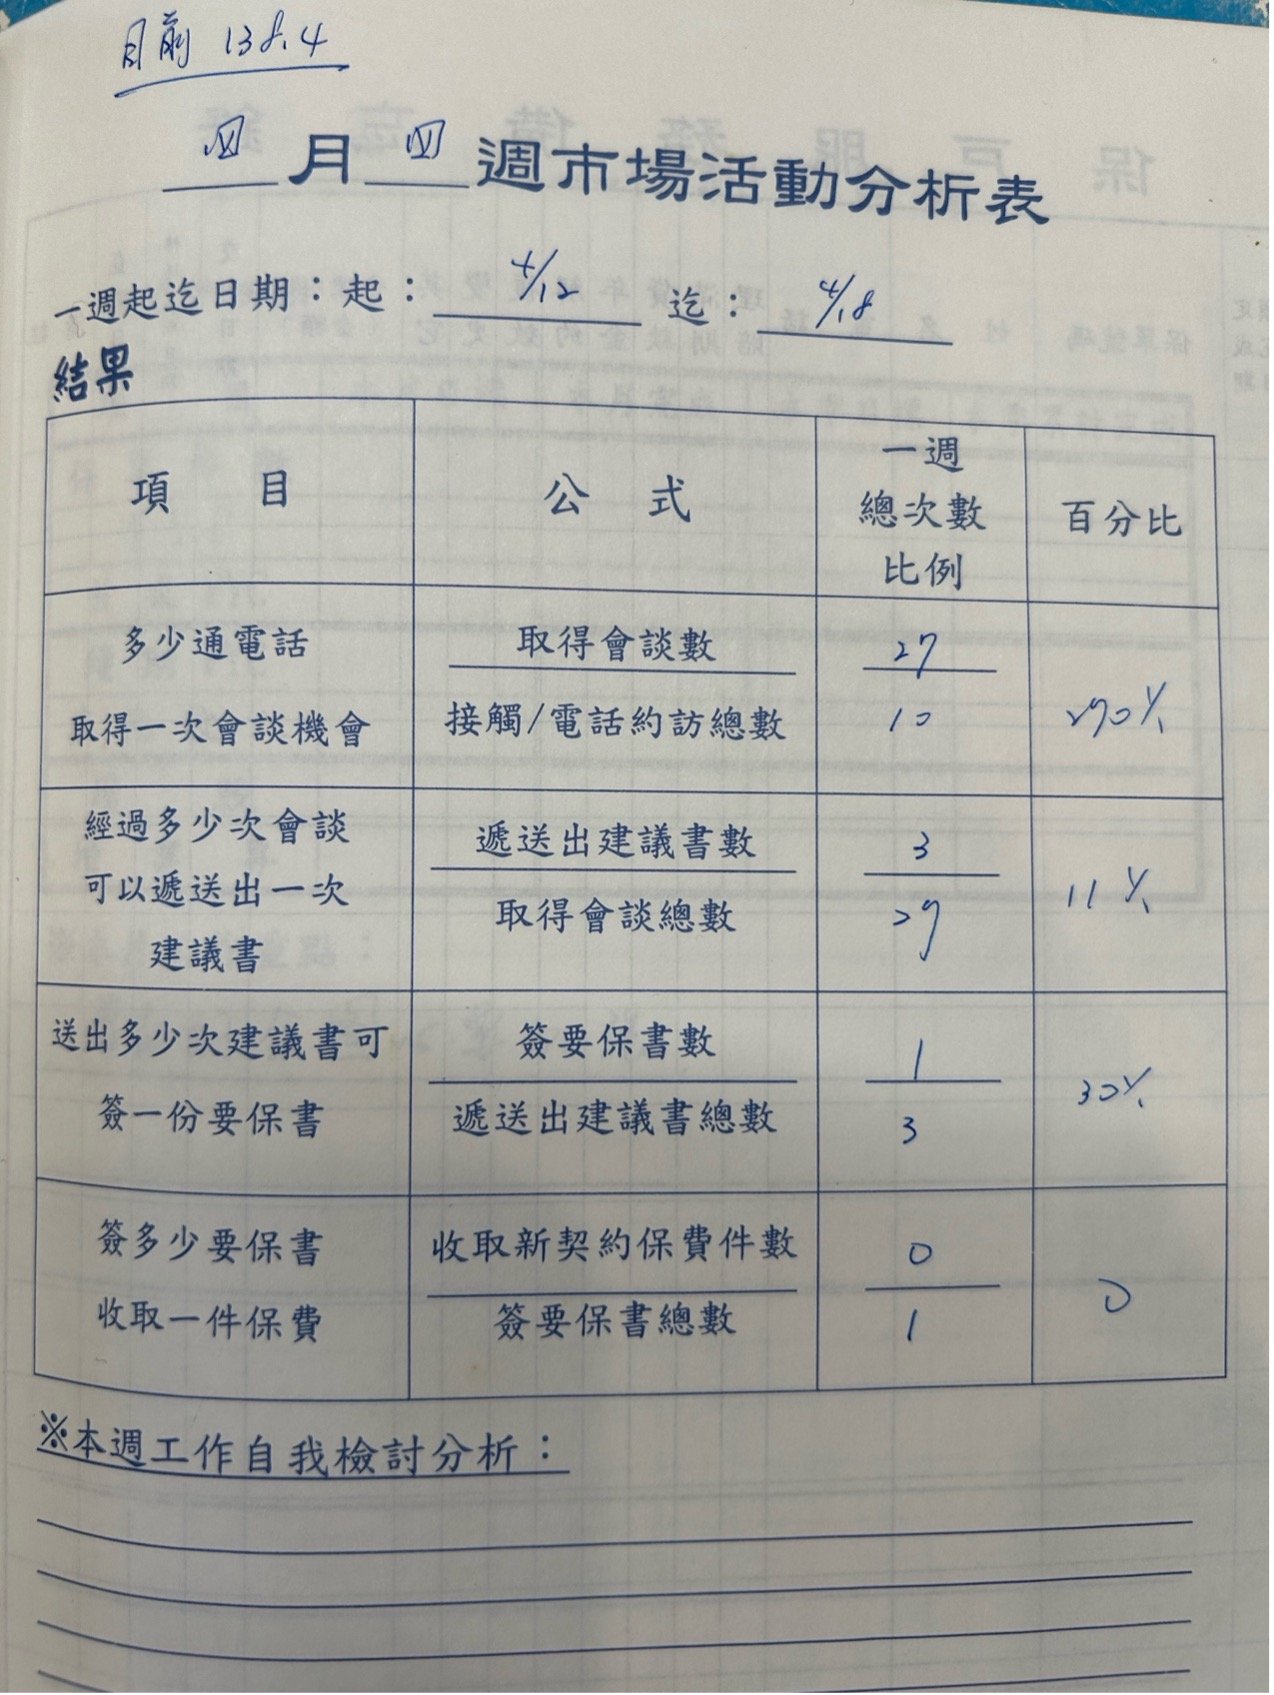 目前 138.4
四月四週市場活動分析表
一週起迄日期：起：4/12 迄：4/18
結果
項目 公式 一週總次數比例 百分比
多少通電話 取得會談數 27
取得一次會談機會 接觸/電話約訪總數 10 270%
經過多少次會談 遞送出建議書數 3
可以遞送出一次 取得會談總數 27 11%
建議書
送出多少次建議書可 簽要保書數 1
簽一份要保書 遞送出建議書總數 3 30%
簽多少要保書 收取新契約保費件數 0
收取一件保費 簽要保書總數 1 0
※本週工作自我檢討分析：